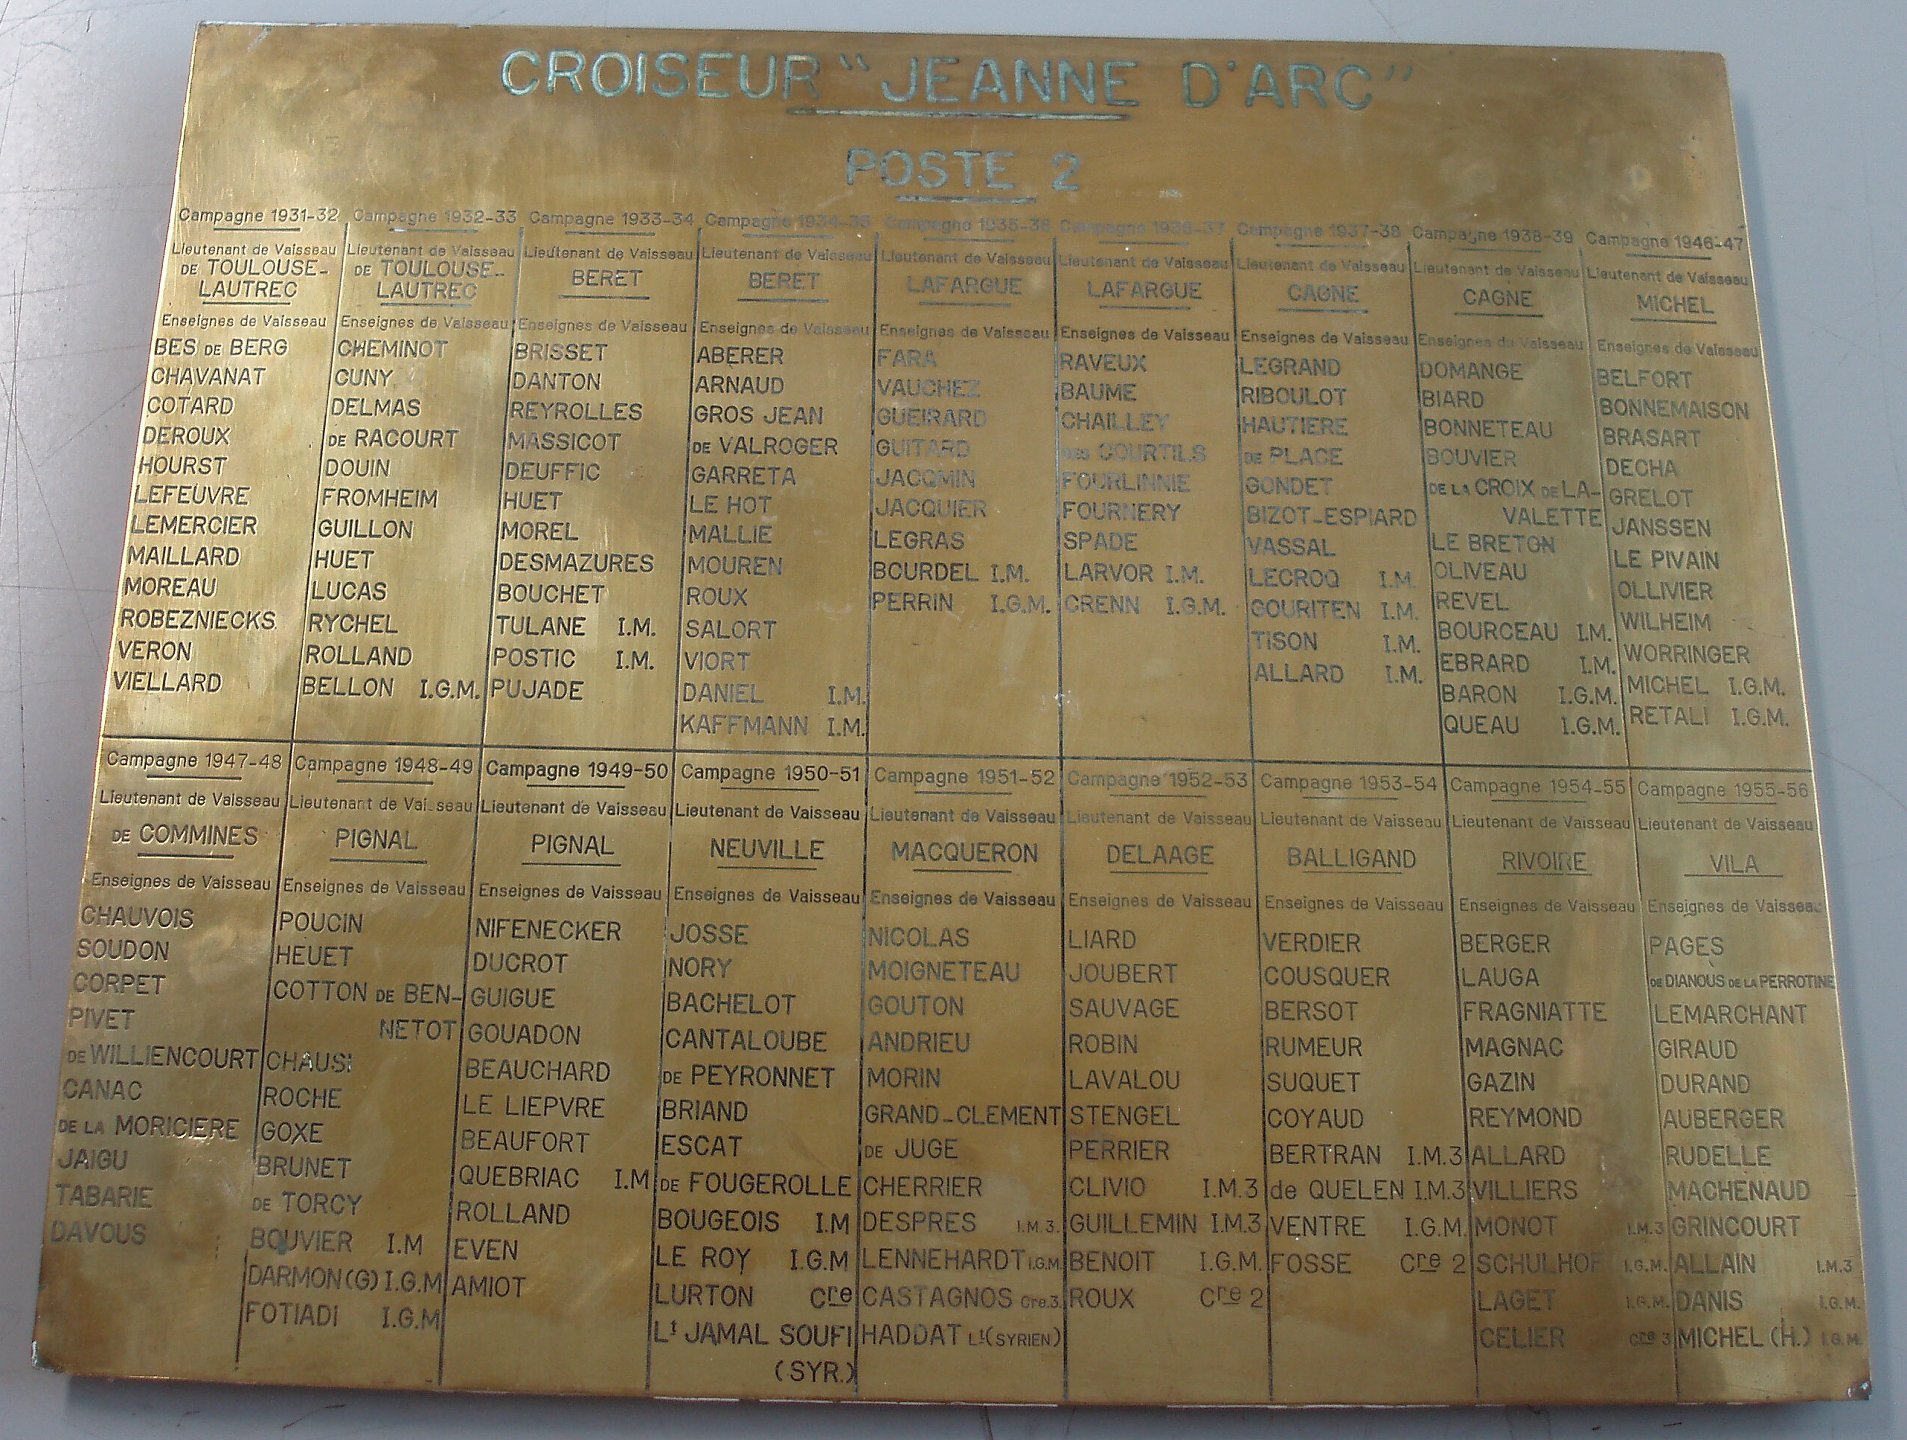 CROISEUR "JEANNE D'ARC"
POSTE 2
Campagne 1931-32
Lieutenant de Vaisseau
DE TOULOUSE-
LAUTREC
Enseignes de Vaisseau
BES DE BERG
CHAVANAT
COTARD
DEROUX
HOURST
LEFEUVRE
LEMERCIER
MAILLARD
MOREAU
ROBEZNIECKS
VERON
VIELLARD
Campagne 1932-33
Lieutenant de Vaisseau
DE TOULOUSE-
LAUTREC
Enseignes de Vaisseau
CHEMINOT
CUNY
DELMAS
DE RACOURT
DOUIN
FROMHEIM
GUILLON
HUET
LUCAS
RYCHEL
ROLLAND
BELLON I.G.M.
Campagne 1933-34
Lieutenant de Vaisseau
BERET
Enseignes de Vaisseau
BRISSET
DANTON
REYROLLES
MASSICOT
DEUFFIC
HUET
MOREL
DESMAZURES
BOUCHET
TULANE I.M.
POSTIC I.M.
PUJADE
Campagne 1934-35
Lieutenant de Vaisseau
BERET
Enseignes de Vaisseau
ABERER
ARNAUD
GROS JEAN
DE VALROGER
GARRETA
LE HOT
MALLIE
MOUREN
ROUX
SALORT
VIORT
DANIEL I.M.
KAFFMANN I.M.
Campagne 1935-36
Lieutenant de Vaisseau
LAFARGUE
Enseignes de Vaisseau
FARA
VAUCHEZ
GUEIRARD
GUITARD
JACQMIN
JACQUIER
LEGRAS
BOURDEL I.M.
PERRIN I.G.M.
Campagne 1936-37
Lieutenant de Vaisseau
LAFARGUE
Enseignes de Vaisseau
RAVEUX
BAUME
CHAILLEY
DES COURTILS
FOURLINNIE
FOURNERY
SPADE
LARVOR I.M.
CRENN I.G.M.
Campagne 1937-38
Lieutenant de Vaisseau
CAGNE
Enseignes de Vaisseau
LEGRAND
RIBOULOT
HAUTIERE
DE PLACE
GONDET
BIZOT-ESPIARD
VASSAL
LECROQ I.M.
GOURITEN I.M.
TISON I.M.
ALLARD I.M.
Campagne 1938-39
Lieutenant de Vaisseau
CAGNE
Enseignes de Vaisseau
DOMANGE
BIARD
BONNETEAU
BOUVIER
DE LA CROIX DE LA-
VALETTE
LE BRETON
OLIVEAU
REVEL
BOURCEAU I.M.
EBRARD I.M.
BARON I.G.M.
QUEAU I.G.M.
Campagne 1946-47
Lieutenant de Vaisseau
MICHEL
Enseignes de Vaisseau
BELFORT
BONNEMAISON
BRASART
DECHA
GRELOT
JANSSEN
LE PIVAIN
OLLIVIER
WILHEIM
WORRINGER
MICHEL I.G.M.
RETALI I.G.M.
Campagne 1947-48
Lieutenant de Vaisseau
DE COMMINES
Enseignes de Vaisseau
CHAUVOIS
SOUDON
CORPET
PIVET
DE WILLIENCOURT
CANAC
DE LA MORICIERE
JAIGU
TABARIE
DAVOUS
Campagne 1948-49
Lieutenant de Vaisseau
PIGNAL
Enseignes de Vaisseau
POUCIN
HEUET
COTTON DE BEN-
NETOT
CHAUSI
ROCHE
GOXE
BRUNET
DE TORCY
BOUVIER I.M
DARMON(G) I.G.M
FOTIADI I.G.M
Campagne 1949-50
Lieutenant de Vaisseau
PIGNAL
Enseignes de Vaisseau
NIFENECKER
DUCROT
GUIGUE
GOUADON
BEAUCHARD
LE LIEPVRE
BEAUFORT
QUEBRIAC I.M
ROLLAND
EVEN
AMIOT
Campagne 1950-51
Lieutenant de Vaisseau
NEUVILLE
Enseignes de Vaisseau
JOSSE
NORY
BACHELOT
CANTALOUBE
DE PEYRONNET
BRIAND
ESCAT
DE FOUGEROLLE
BOUGEOIS I.M
LE ROY I.G.M
LURTON Cre
Lt JAMAL SOUFI
(SYR.)
Campagne 1951-52
Lieutenant de Vaisseau
MACQUERON
Enseignes de Vaisseau
NICOLAS
MOIGNETEAU
GOUTON
ANDRIEU
MORIN
GRAND-CLEMENT
DE JUGE
CHERRIER
DESPRES I.M.3.
LENNEHARDT I.G.M.
CASTAGNOS Cre.3.
HADDAT Lt(SYRIEN)
Campagne 1952-53
Lieutenant de Vaisseau
DELAAGE
Enseignes de Vaisseau
LIARD
JOUBERT
SAUVAGE
ROBIN
LAVALOU
STENGEL
PERRIER
CLIVIO I.M.3
GUILLEMIN I.M.3
BENOIT I.G.M.
ROUX Cre 2
Campagne 1953-54
Lieutenant de Vaisseau
BALLIGAND
Enseignes de Vaisseau
VERDIER
COUSQUER
BERSOT
RUMEUR
SUQUET
COYAUD
BERTRAN I.M.3
de QUELEN I.M.3
VENTRE I.G.M.
FOSSE Cre 2
Campagne 1954-55
Lieutenant de Vaisseau
RIVOIRE
Enseignes de Vaisseau
BERGER
LAUGA
FRAGNIATTE
MAGNAC
GAZIN
REYMOND
ALLARD
VILLIERS
MONOT I.M.3
SCHULHOF I.G.M.
LAGET I.G.M.
CELIER Cre 3
Campagne 1955-56
Lieutenant de Vaisseau
VILA
Enseignes de Vaisseau
PAGES
DE DIANOUS DE LA PERROTINE
LEMARCHANT
GIRAUD
DURAND
AUBERGER
RUDELLE
MACHENAUD
GRINCOURT
ALLAIN I.M.3
DANIS I.G.M.
MICHEL (H.) I.G.M.